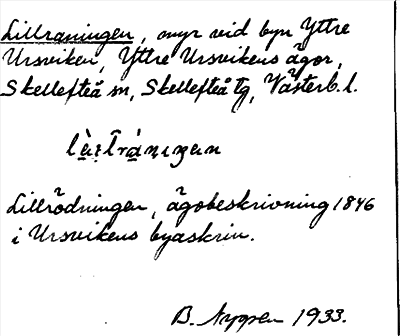 Lillraningen, myr vid byn Yttre
Ursviken, Yttre Ursvikens ägor,
Skellefteå sn, Skellefteå tg, Västerb. l.
Lillrödningen, ägobeskrivning 1846
i Ursvikens byaskrin.
B. Nygren 1933.